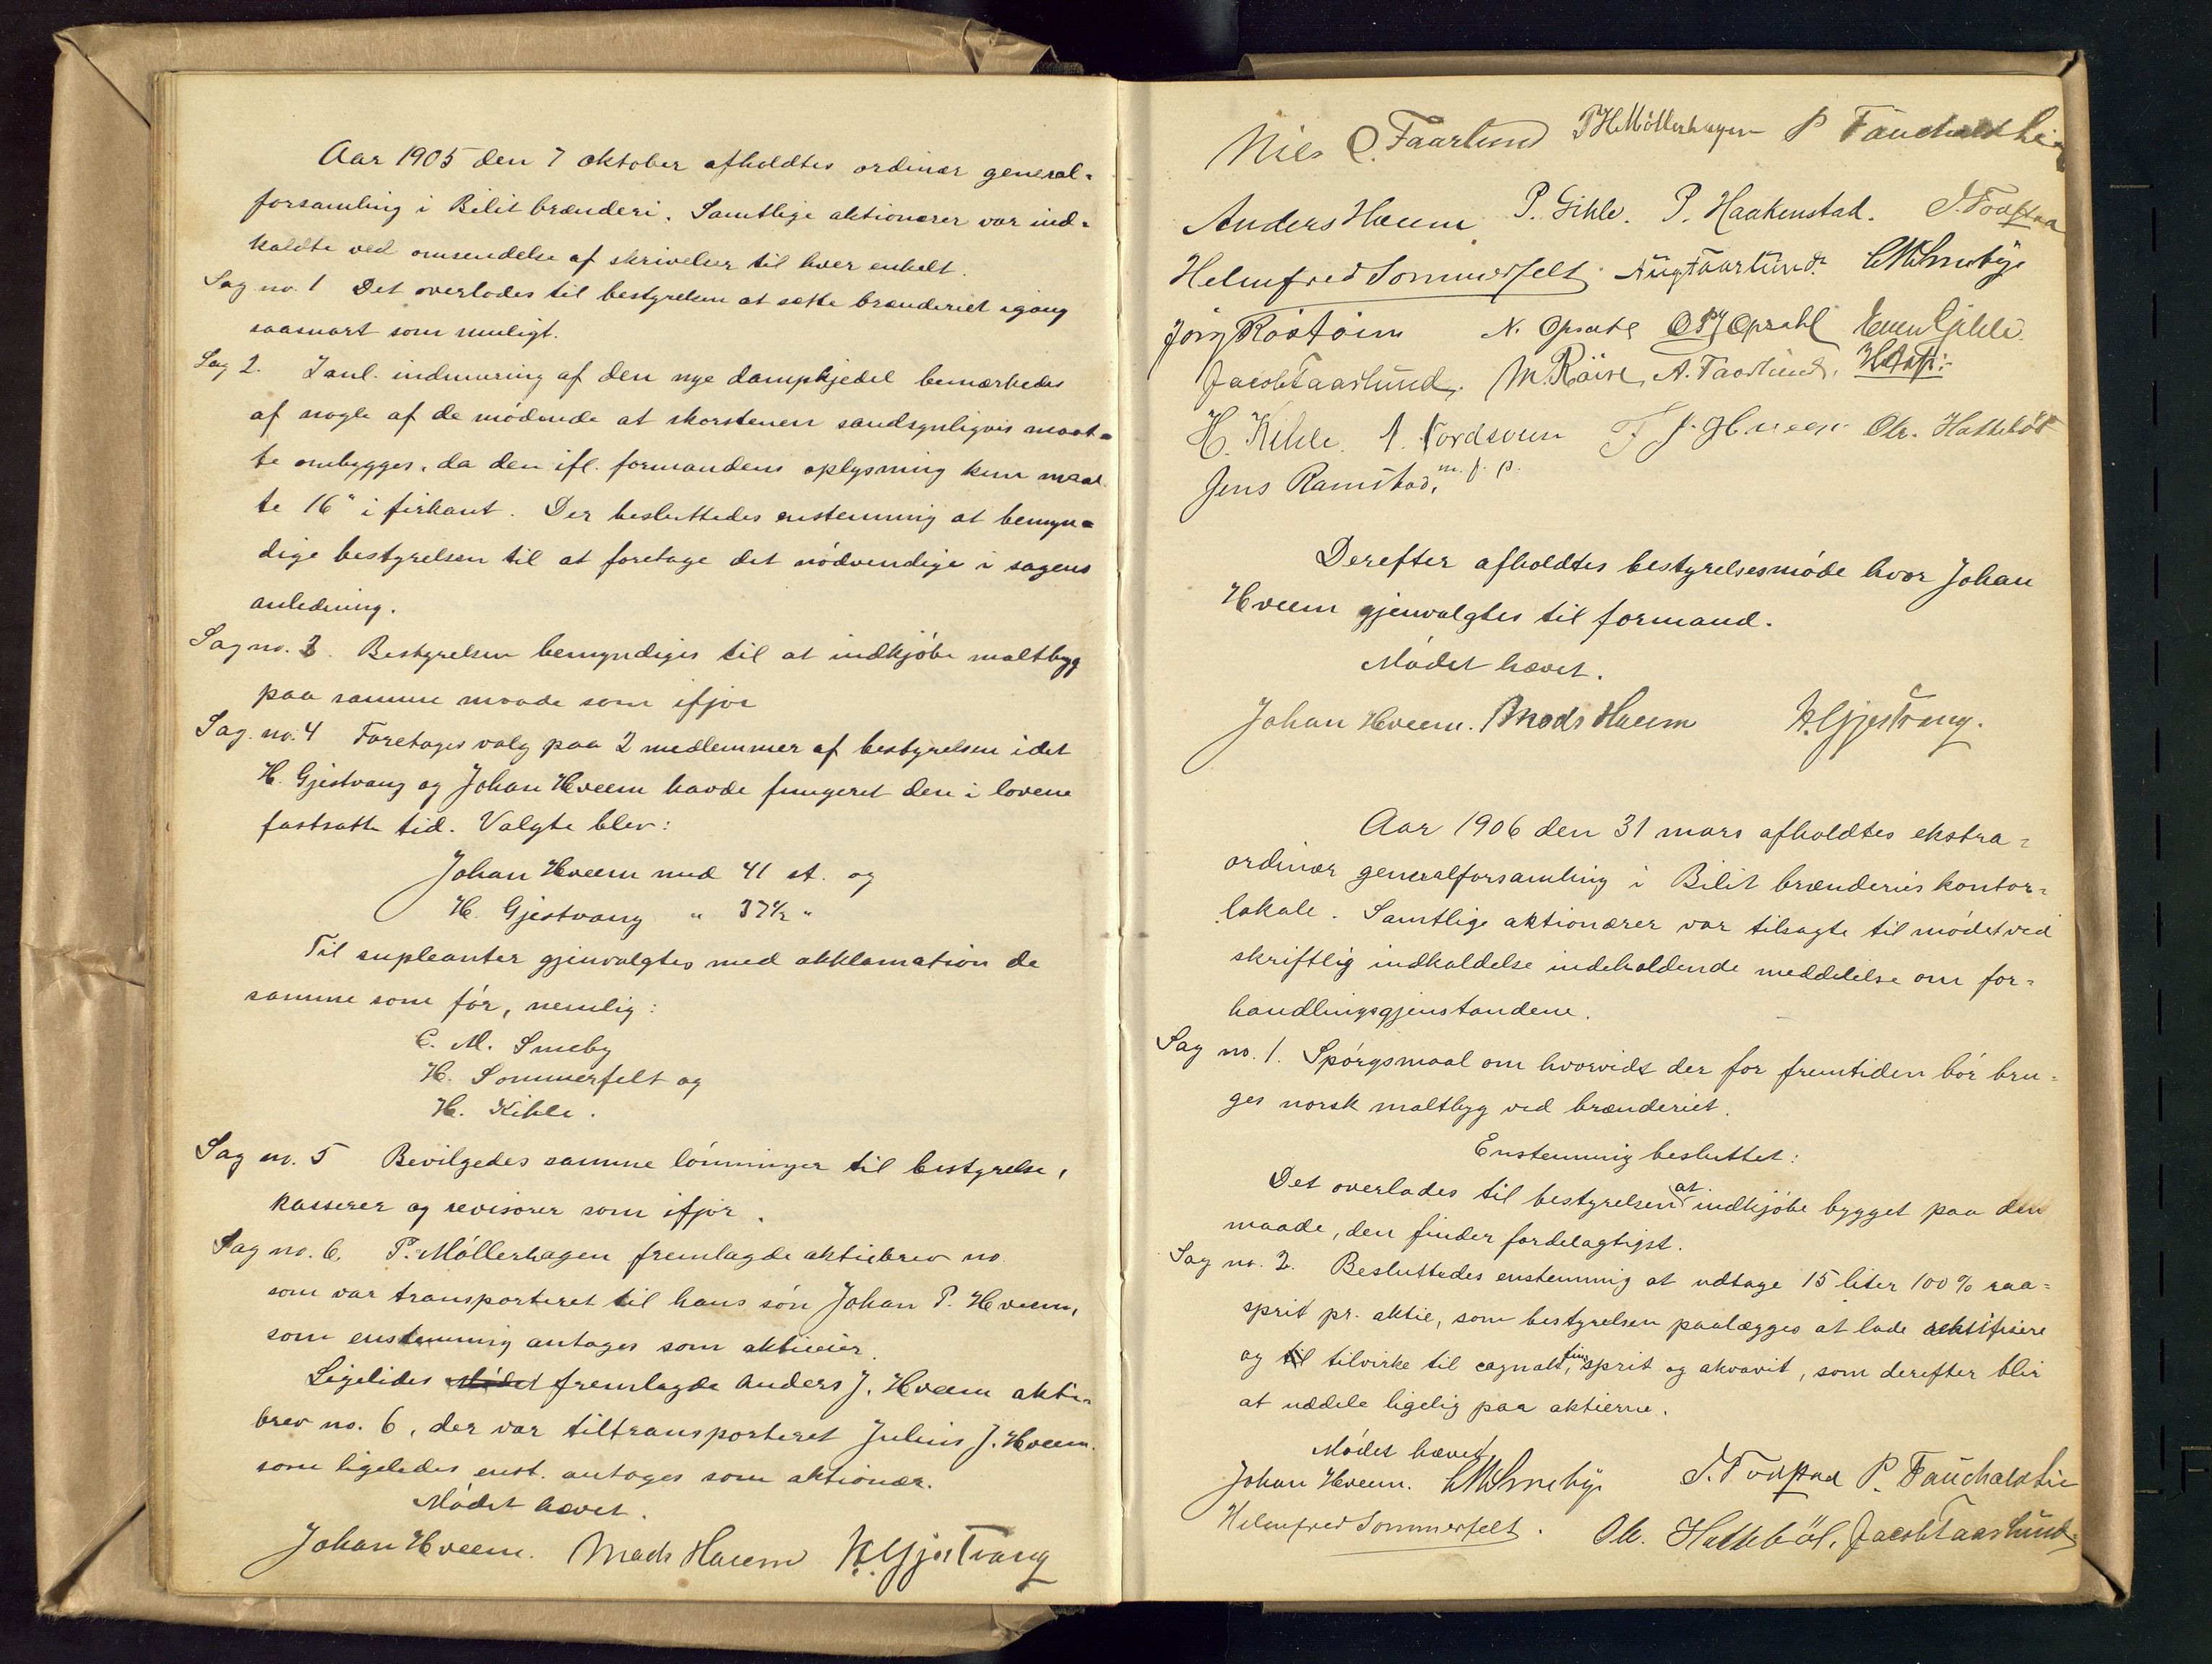 Aar 1905 den 7 oktober afholdtes ordinær general-
forsamling i Bilit brænderi. Samtlige aktionærer var ind-
kaldte ved omsendelse af skrivelser til hver enkelt.
Sag no. 1 Det overlodes til bestyrelsen at sætte brænderiet igang
saasnart som muligt.
Sag 2. I anl. indmuring af den nye dampkjedel bemærkedes
af nogle af de mödende at skorstenen sandsynligvis maat-
te ombygges, da den ifl. formandens oplysning kun maal
te 16" i firkant. Der besluttedes enstemmig at bemyn-
dige bestyrelsen til at foretage det nödvendige i sagens
anledning.
Sag no. 3. Bestyrelsen bemyndiges til at indkjöbe maltbyg
paa samme maade som ifjor
Sag. no. 4 Foretages valg paa 2 medlemmer af bestyrelsen idet
H. Gjestvang og Johan Hveem havde fungeret den i lovene
fastsatte tid. Valgte blev:
Johan Hveem med 41 st. og
H. Gjestvang " 37½ "
Til supleanter gjenvalgtes med akklamation de
samme som för, nemlig:
C. M. Smeby
H. Sommerfelt og
H. Kihle.
Sag no. 5 Bevilgedes samme lönninger til bestyrelse,
kasserer og revisorer som ifjor.
Sag no. 6. P. Möllerhagen fremlagde aktiebrev no
som var transporteret til hans sön Johan P. Hveem,
som enstemmig antages som aktieeier.
Ligelides Mödet fremlagde Anders J. Hveem aktie-
brev no. 6, der var tiltransporteret Julius J. Hveem.
som ligeledes enst. antages som aktionær.
Mödet hævet.
Johan Hveem. Mads Hveem H. Gjestvang
Nils O. Faarlund P H Möllerhagen P Fauchald
Anders Hveem P. Gihle. P. Haakenstad. J. Fodstad
Helmfred Sommerfelt. Aug Faarlund. C M Smeby
Jörg Röstöen N. Opsahl O P Opsahl Even Gihle.
Jacob Faarlund. M. Röise, A. Faarlund.
H. Kihle. A. Nordsveen J. Hveem Chr. Hattebøl
Jens Ramstad, m. f. p.
Derefter afholdtes bestyrelsesmöde hvor Johan
Hveem gjenvalgtes til formand.
Mödet hævet.
Johan Hveem. Mads Hveem H. Gjestvang.
Aar 1906 den 31 mars afholdtes ekstra-
ordinær generalforsamling i Bilit brænderies kontor-
lokale. Samtlige aktionærer var tilsagte til mödet ved
skriftlig indkaldelse indeholdende meddelelse om for-
handlingsgjenstandene.
Sag no. 1. Spörgsmaal om hvorvidt der for fremtiden bör bru-
ges norsk maltbyg ved brænderiet.
Enstemmig besluttet:
Det overlades til bestyrelsen at indkjöbe bygget paa den
maade, den finder fordelagtigst.
Sag no. 2. Besluttedes enstemmig at udtage 15 liter 100% raa-
sprit pr. aktie, som bestyrelsen paalægges at lade rektifisere
og til tilvirke til cognak, finsprit og akvavit, som derefter blir
at uddele ligelig paa aktierne.
Mödet hævet
Johan Hveem. C M Smeby. J. Fodstad P. Fauchald
Helmfred Sommerfelt. Chr. Hattebøl. Jacob Faarlund